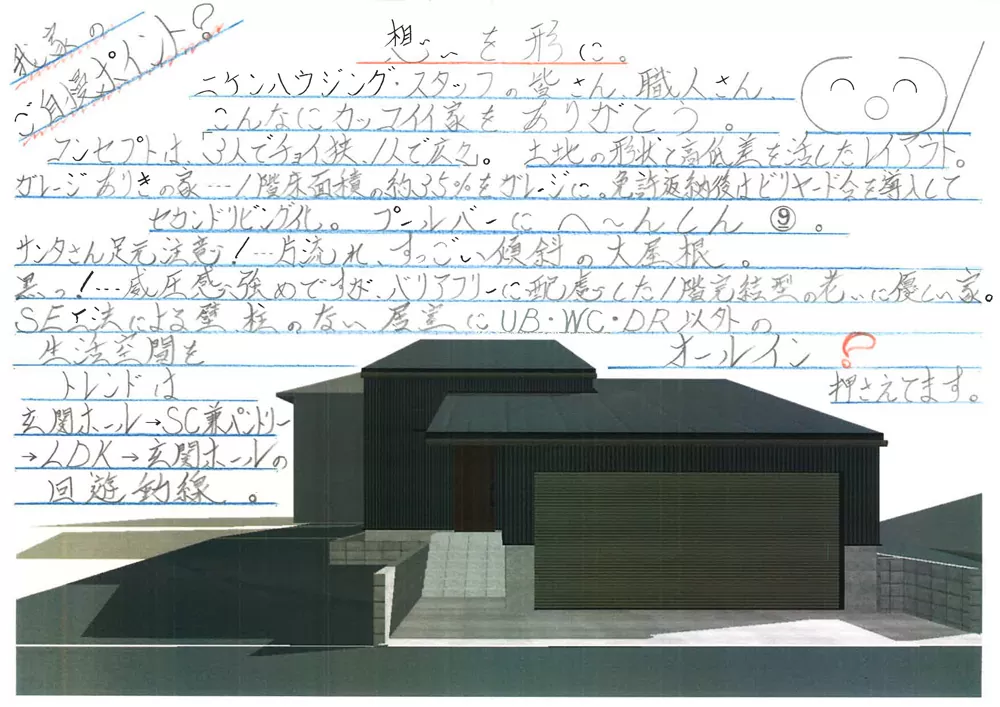 我家の
ご自慢ポイント?
想いを形に。
ニケンハウジング・スタッフの皆さん、職人さん、
こんなにカッコイイ家をありがとう。
コンセプトは、3人でチョイ狭、1人で広々。 土地の形状と高低差を活したレイアウト。
ガレージありきの家…1階床面積の約35%をガレージに。免許返納後はビリヤード台を導入して
セカンドリビング化。プールバーにへ~んしん⑨。
サンタさん足元注意!…片流れ、すっごい傾斜の大屋根。
黒っ!…威圧感強めですが、バリアフリーに配慮した1階完結型の老いに優しい家。
SE工法による壁、柱のない居室にUB・WC・DR以外の
生活空間を オールイン?
トレンドは 押さえてます。
玄関ホール→SC兼パントリー
→LDK→玄関ホールの
回遊動線。